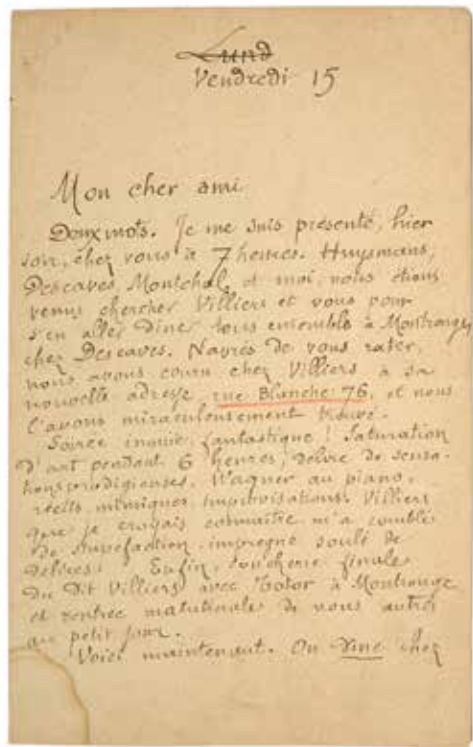 Lund
Vendredi 15
Mon cher ami
Deux mots. Je me suis présenté, hier
soir, chez vous à 7 heures. Huysmans,
Descaves, Montchal et moi, nous étions
venus chercher Villiers et vous pour
s'en aller dîner tous ensemble à Montrouge
chez Descaves. Navrés de vous rater,
nous avons couru chez Villiers à sa
nouvelle adresse rue Blanche 76, et nous
l'avons miraculeusement trouvé.
Soirée inouïe, fantastique ! Saturation
d'art pendant 6 heures, délire de sensa-
tions prodigieuses. Wagner au piano,
récits mimiques improvisations. Villiers
que je croyais connaître m'a comblé
de stupéfaction, imprégné soulé de
délices. Enfin, coucherie finale
du dit Villiers avec Totor à Montrouge
et rentrée matutinale de nous autres
au petit jour.
Voici maintenant. On dîne chez